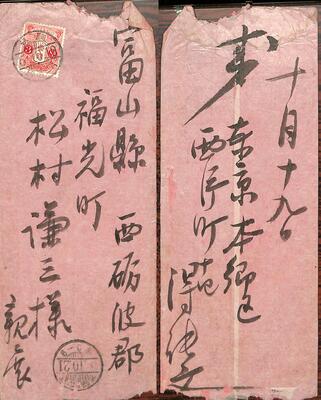 富山縣 西砺波郡
福光町
松村謙三様
親展
十月十九日
東京本郷区
西片町十